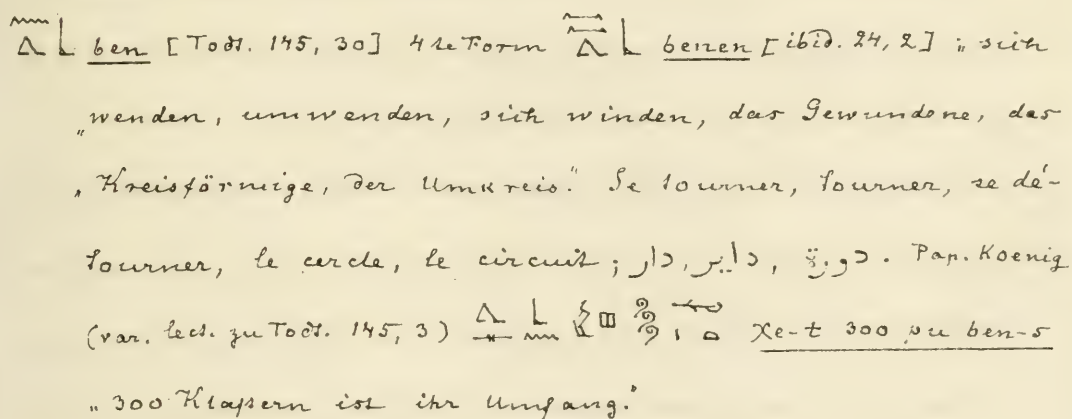 𓈖𓂻𓃀 ben [Todt. 145, 30] 4te Form 𓈖𓈖𓂻𓃀 benen [ibid. 24, 2] „sich
„wenden, umwenden, sich winden, das Gewundene, das
„Kreisförmige, der Umkreis.“ Se tourner, tourner, se dé-
tourner, le cercle, le circuit; دار, داير, دورة. Pap. Koenig
(var. lect. zu Todt. 145, 3) χe-t 300 pu ben-s
„300 Klafsern ist ihr Umfang.“